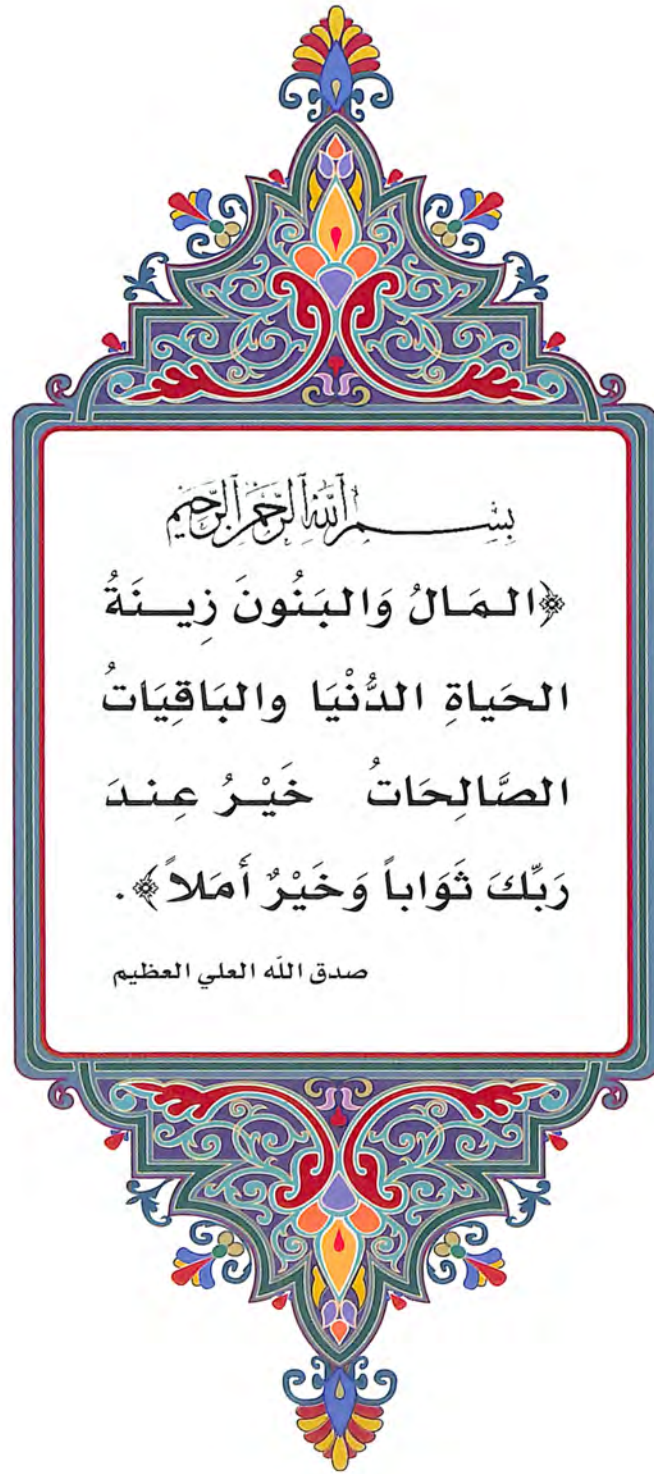 بِسْمِ ٱللَّهِ ٱلرَّحْمَٰنِ ٱلرَّحِيمِ
﴿المَالُ وَالبَنُونَ زِينَةُ
الحَيَاةِ الدُّنْيَا والبَاقِيَاتُ
الصَّالِحَاتُ خَيْرُ عِندَ
رَبِّكَ ثَوَاباً وَخَيْرٌ أَمَلاً﴾.
صدق الله العلي العظيم